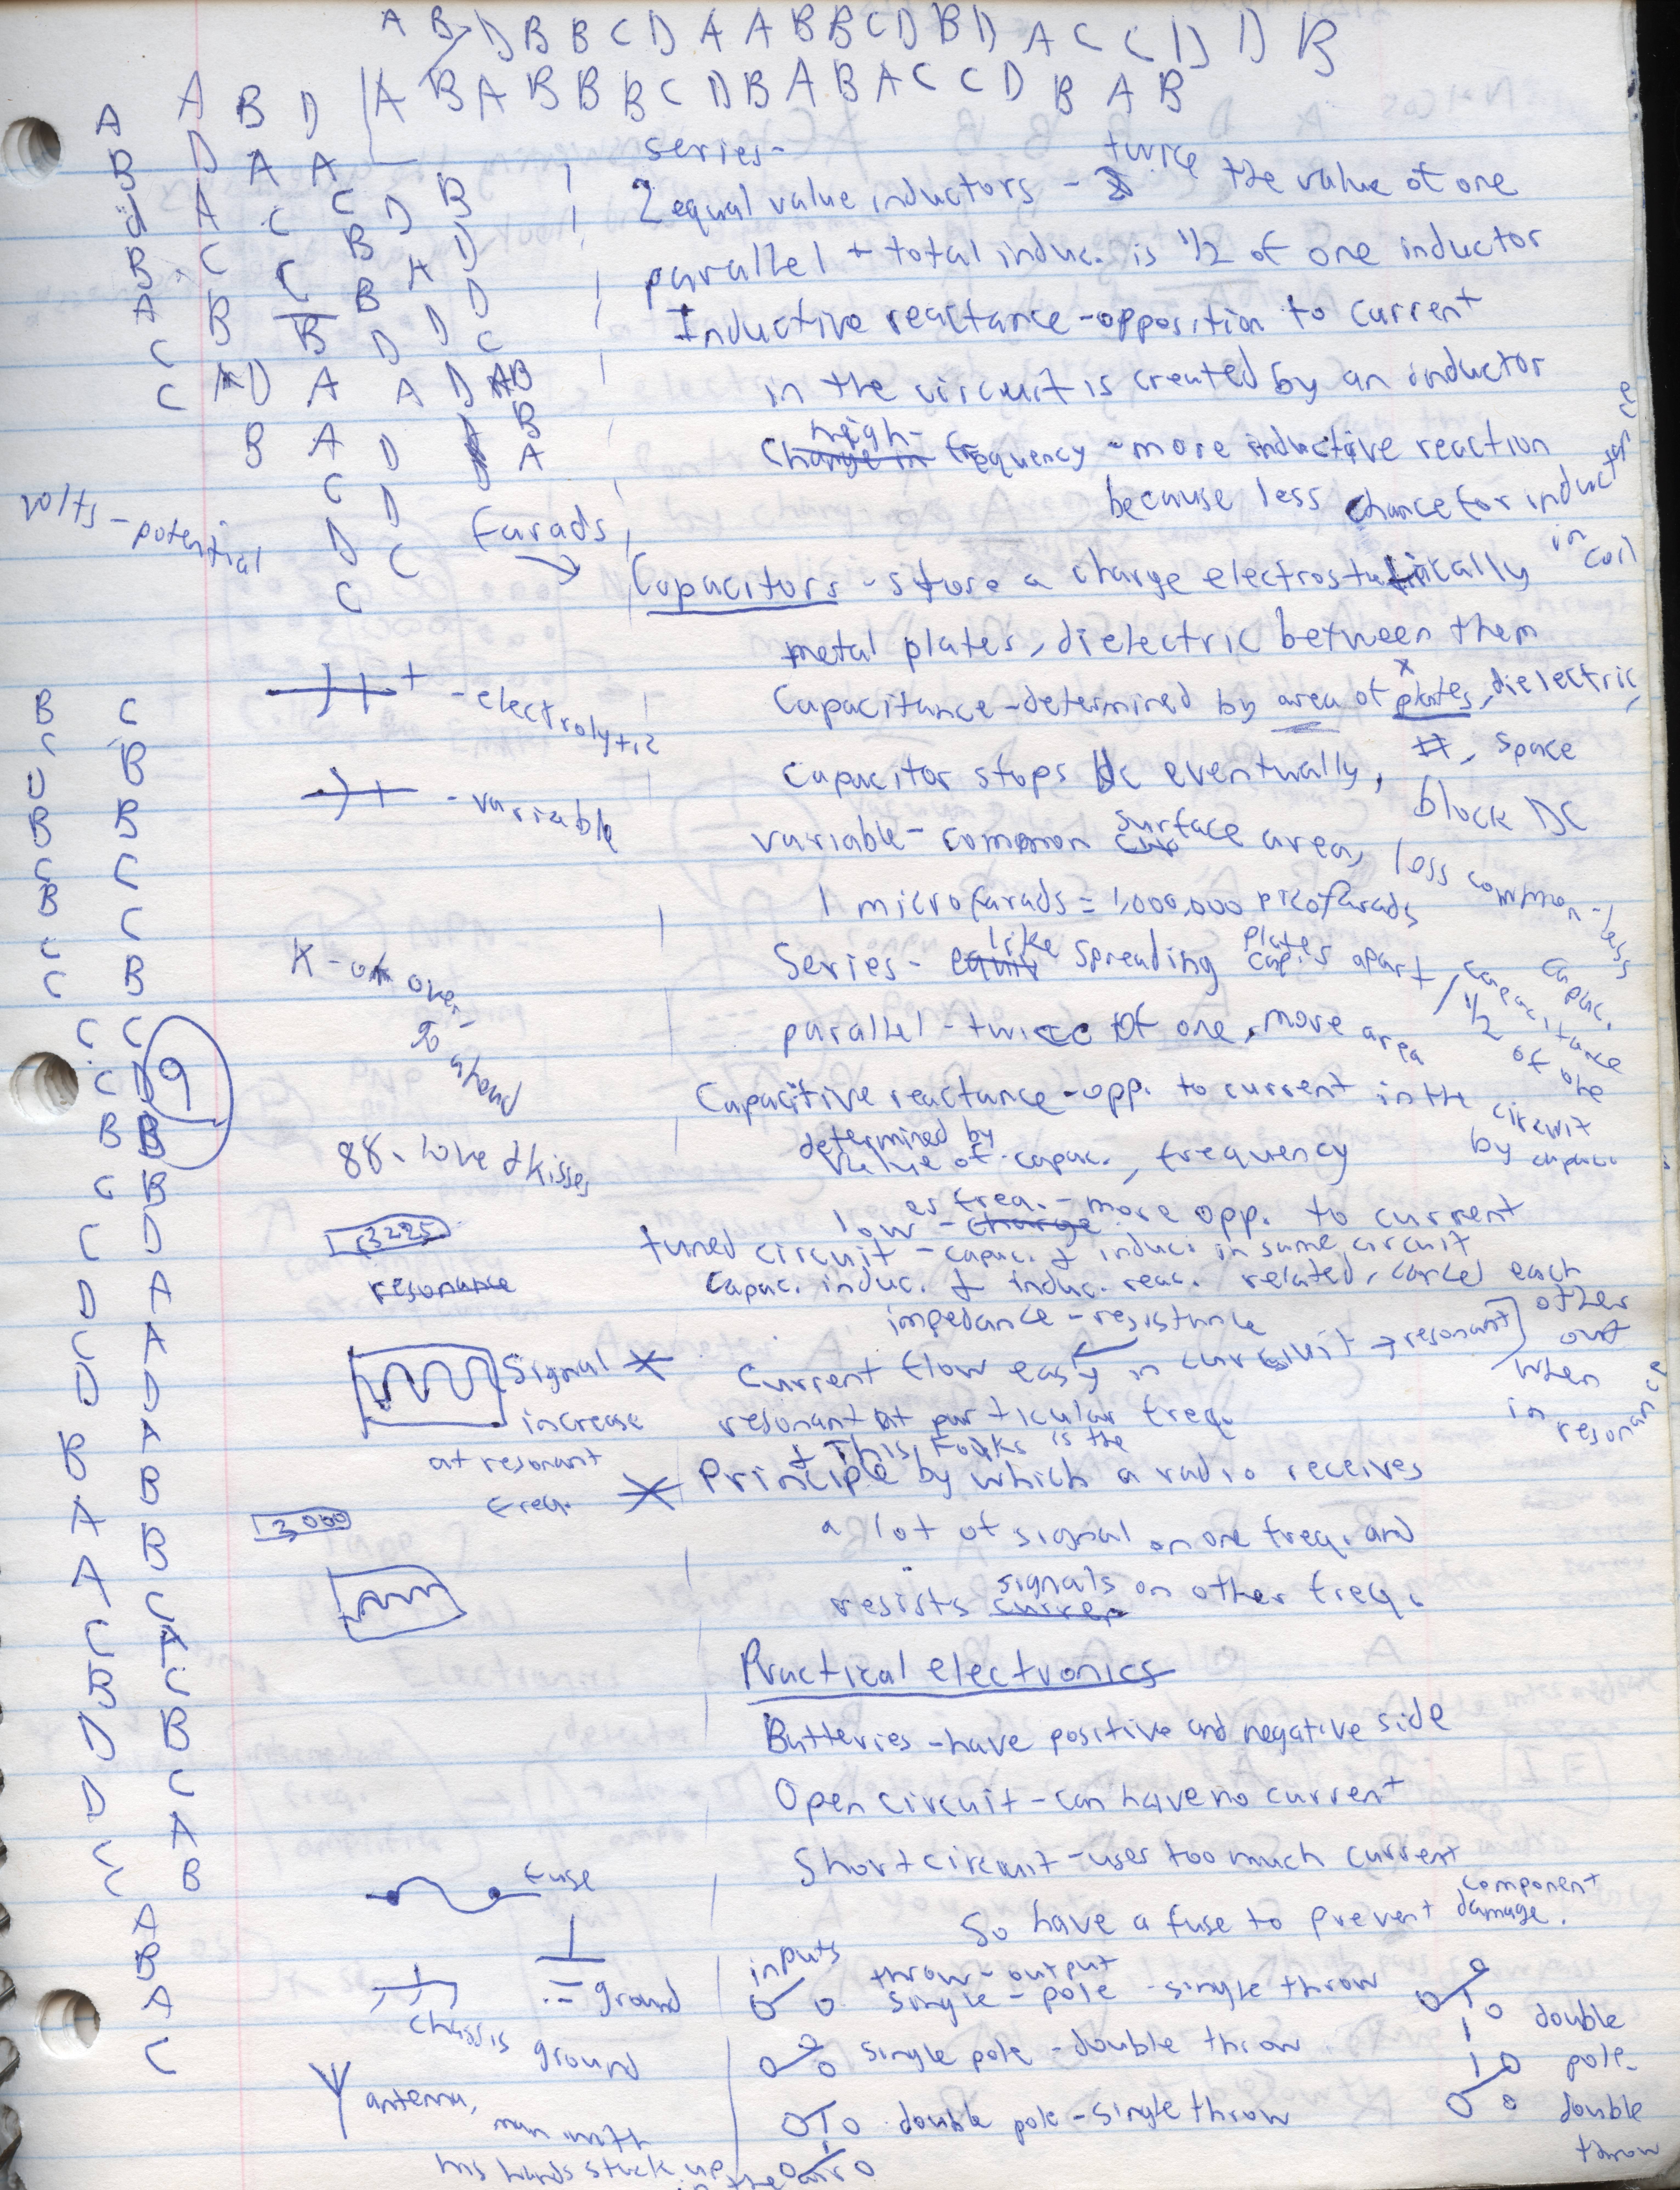 A B D B B C D A A B B C D B D A C C D D B
A B A B B B C D B A B A C C D B A B
A A B D
B D A A
A C C D B
B C C B D
A B C B A D
C B D D C
C D A A D AB
B A D B
C D A
D C
C
volts - potential
farads
series -
2 equal value inductors - twice the value of one
parallel + total induc. is 1/2 of one inductor
Inductive reactance - opposition to current
in the circuit is created by an inductor
Change in high-frequency - more inductive reaction
because less chance for inductance
in coil
Capacitors - store a charge electrostatically
metal plates, dielectric between them
Capacitance - determined by area of plates, dielectric,
#, space
Capacitor stops DC eventually,
block DC
variable - common surface area, less common - less capac.
1 microfarads = 1,000,000 picofarads
Series - equiv like spreading plates apart, capacitance 1/2 of one
parallel - twice of one, more area
Capacitive reactance - opp. to current in the circuit
by capac.
determined by
value of capac., frequency
as freq. - more opp. to current
low - charge
tuned circuit - capac. & induc. in same circuit
capac. induc. & induc. reac. related, cancel each
other out when in resonance
impedance - resistance
current flow easy in circuit → resonant
resonant at particular freq.
+ This, Folks is the
Principle by which a radio receives
a lot of signal on one freq. and
resists signals on other freq.
- electrolytic
- variable
K - ok over
go ahead
88 - love & kisses
3225
resonance
Signal
increase
at resonant
freq.
3000
B C
C B
D B
B C
C C
B B
C C
C D
C B
C B
B D
C A
C A
D D
C A
D B
B B
A C
A A
C C
B B
D C
D A
C B
C A
B
A
C
9
Practical electronics
Batteries - have positive and negative side
Open circuit - can have no current
Short circuit - uses too much current
So have a fuse to prevent component damage.
fuse
ground
chassis
ground
antenna,
man with
his hands stuck up
in the air
inputs
throw - output
single - pole - single throw
single pole - double throw
double pole - single throw
double
pole -
double
throw